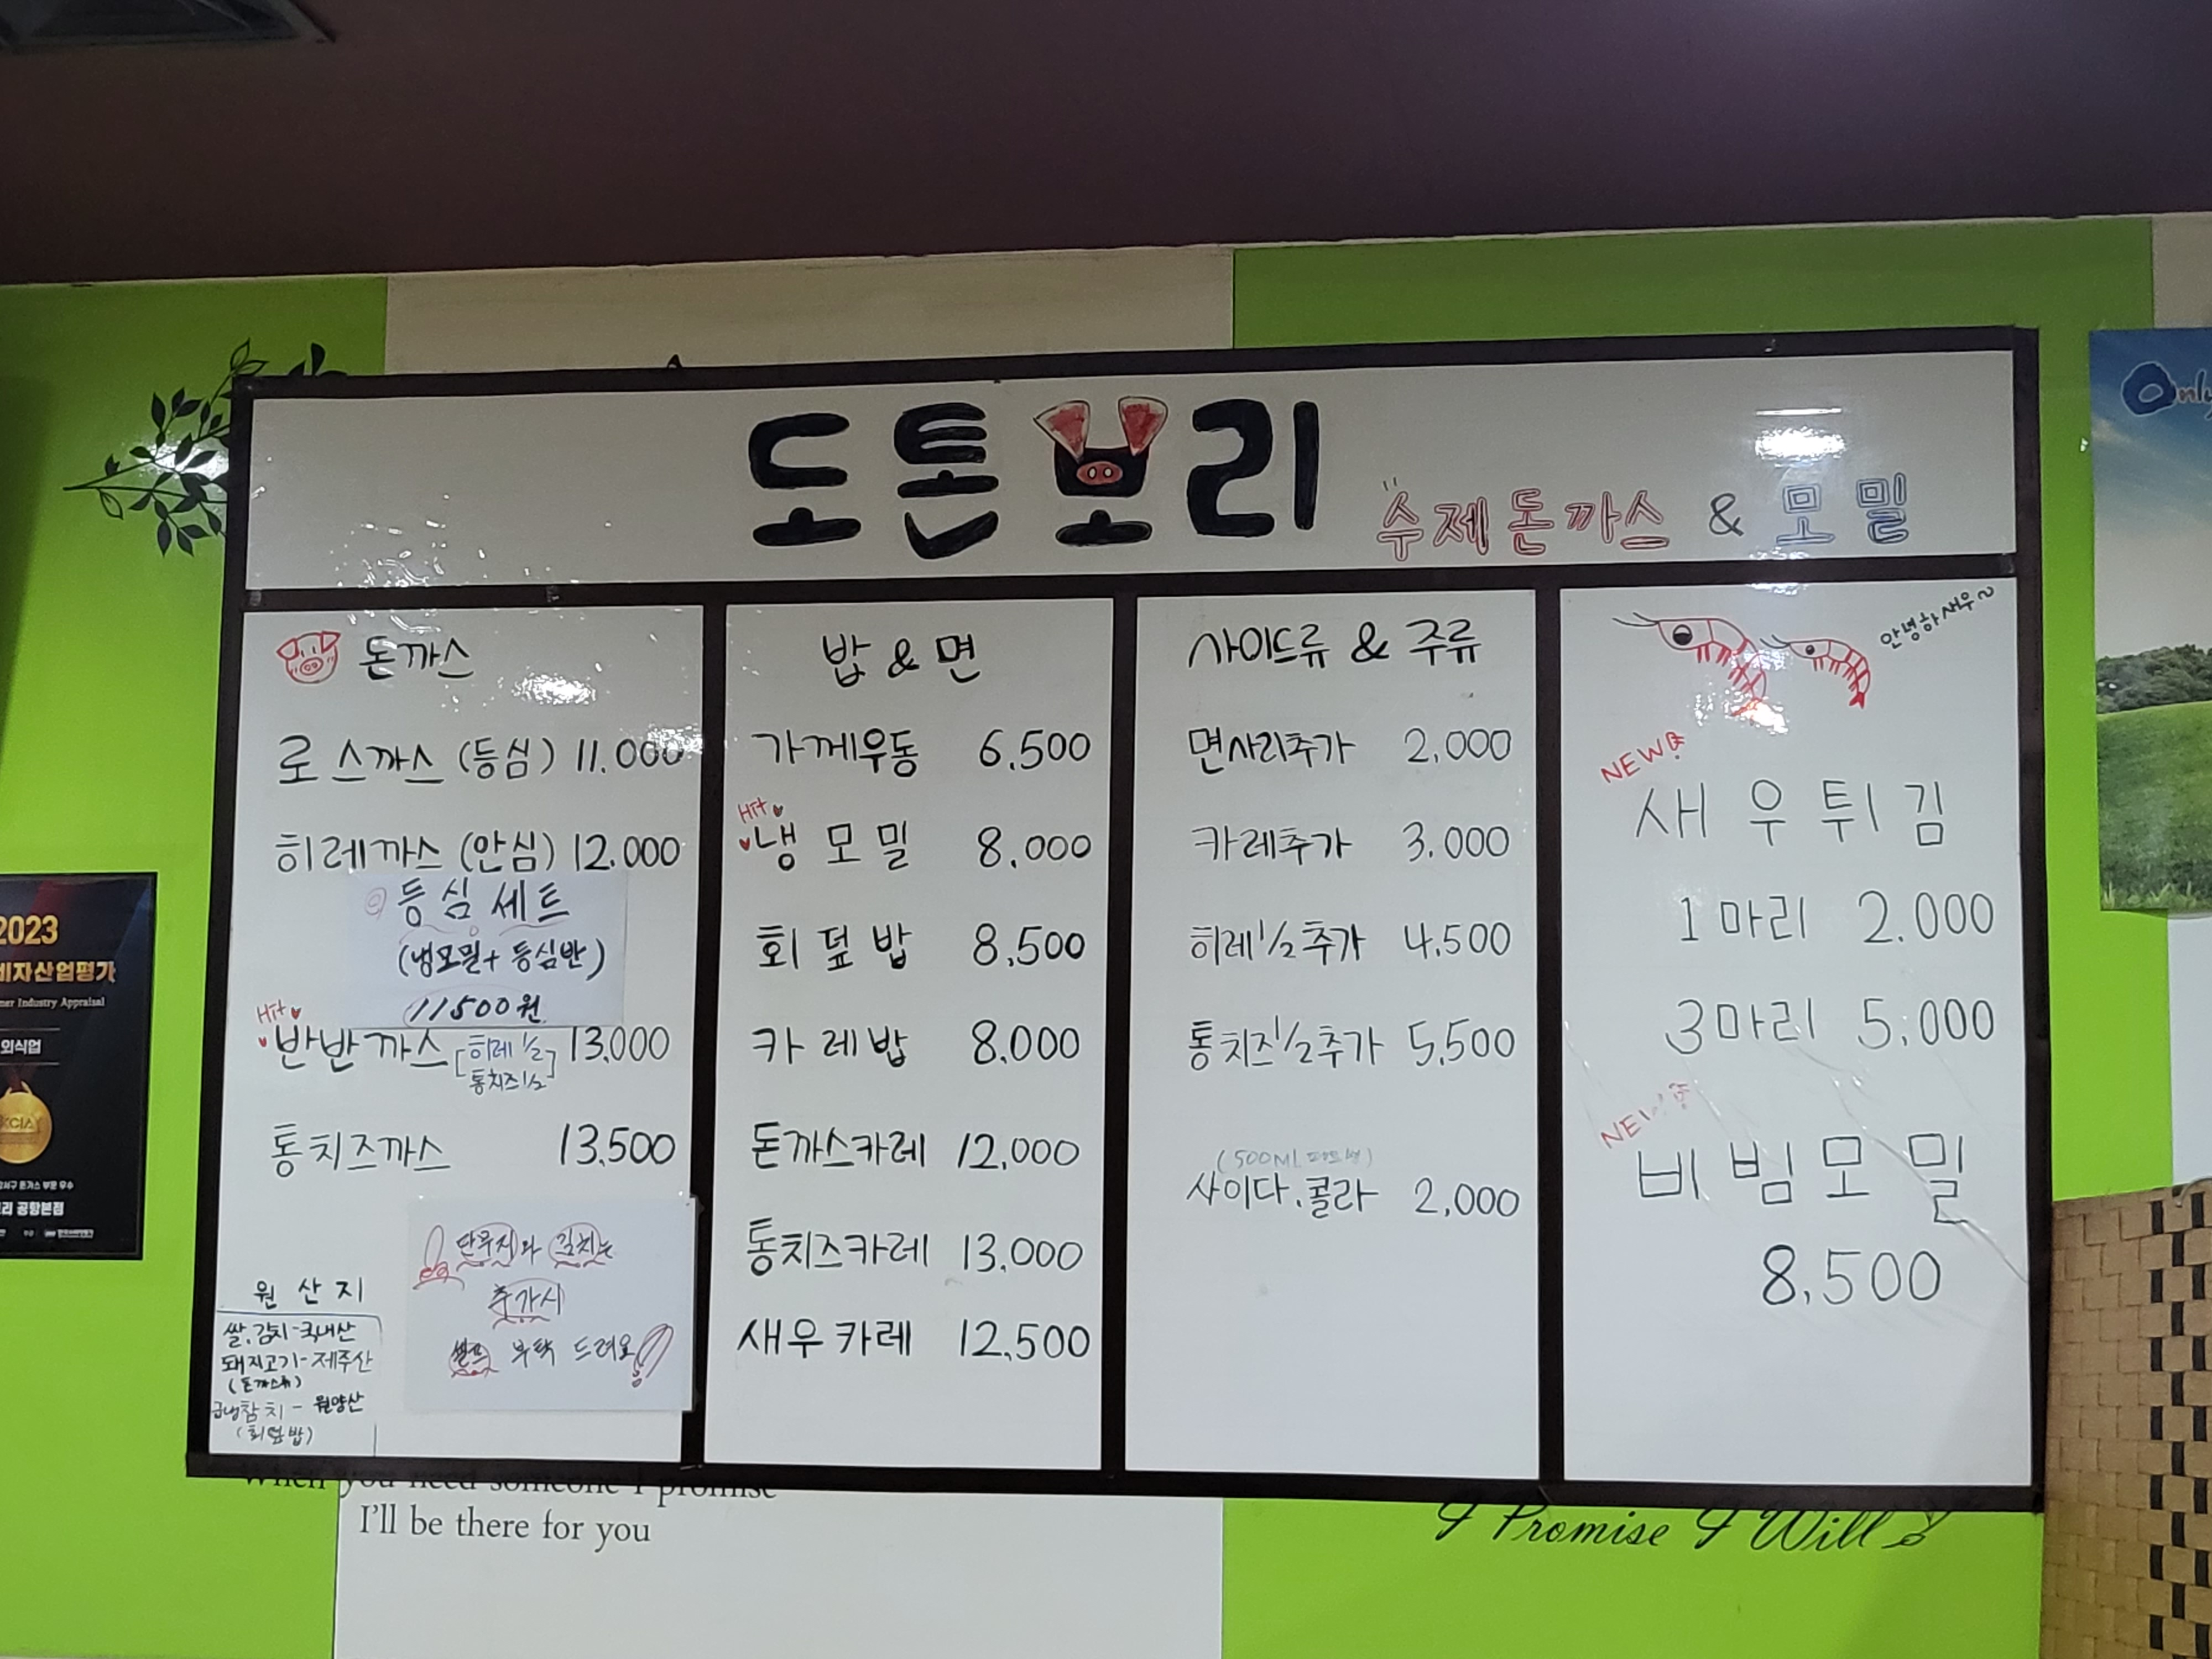 도톤보리
수제돈까스 & 모밀
돈까스
로스까스 (등심) 11.000
히레까스 (안심) 12.000
등심 세트
(냉모밀 + 등심반)
11500원
Hit
반반까스 [히레 1/2 통치즈 1/2] 13,000
통치즈까스 13.500
단무지와 김치는
추가시
셀프 부탁 드려요!
원산지
쌀, 김치-국내산
돼지고기-제주산
(돈까스류)
냉참치 - 원양산
(회덮밥)
밥 & 면
가께우동 6.500
Hit
냉모밀 8.000
회덮밥 8,500
카레밥 8.000
돈까스카레 12,000
통치즈카레 13.000
새우카레 12,500
사이드류 & 주류
면사리추가 2,000
카레추가 3.000
히레1/2추가 4,500
통치즈1/2추가 5,500
(500ML)
사이다.콜라 2,000
안녕하새우~
NEW
새우튀김
1마리 2.000
3마리 5,000
NEW
비빔모밀
8,500
Only
2023
비자산업평가
mer Industry Appraisal
외식업
KCIA
강서구 돈가스 부문 우수
리 공항본점
When you need someone I promise
I'll be there for you
I Promise I Will